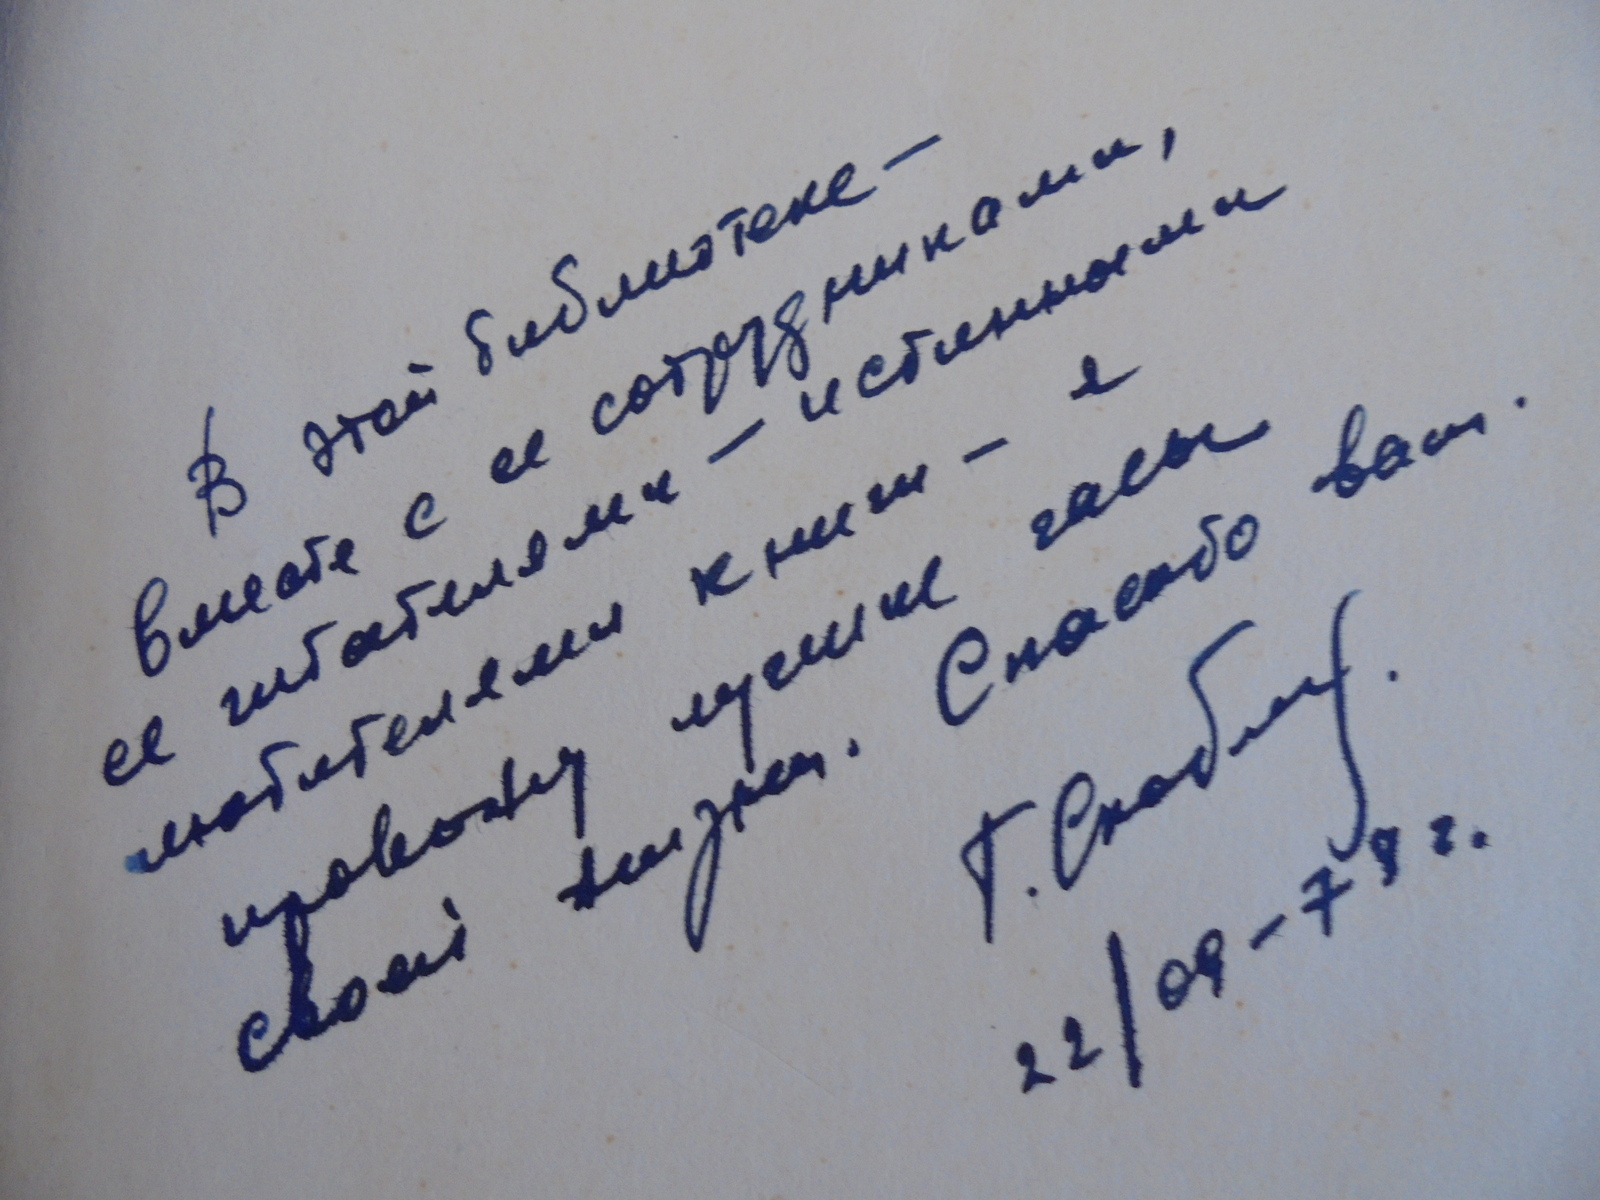 В этой библиотеке —
вместе с ее сотрудниками,
ее читателями — истинными
любителями книги — я
провожу лучшие часы
своей жизни. Спасибо вам.
Г.
22/09-79 г.